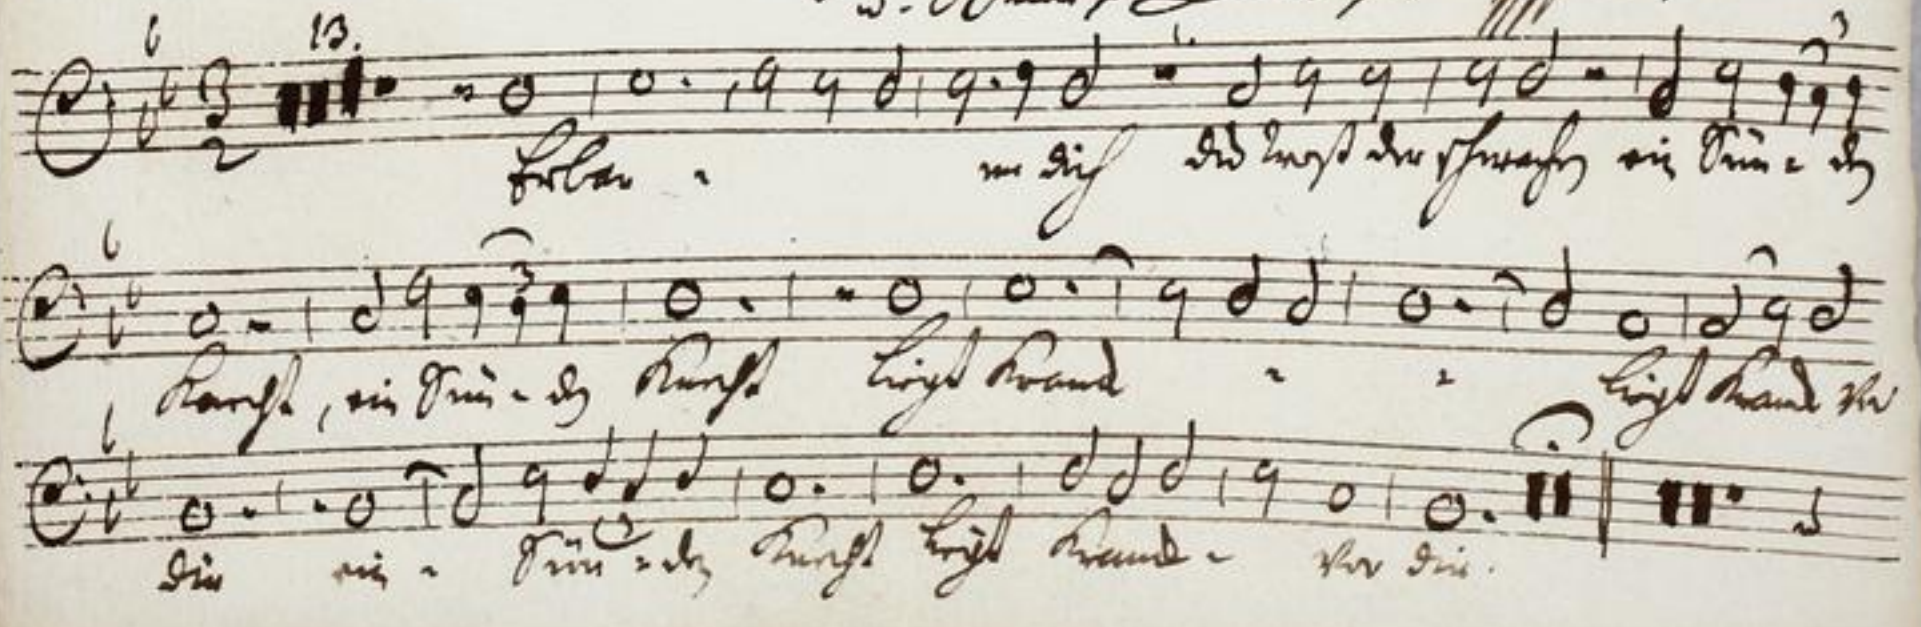 13.
Erbar - me dich du Trost der schwachen ein Sün - den
3
Knecht, ein Sün - den Knecht liegt Kranck - - liegt Kranck vor
3
dir ein - Sün - den Knecht liegt Kranck - vor dir.